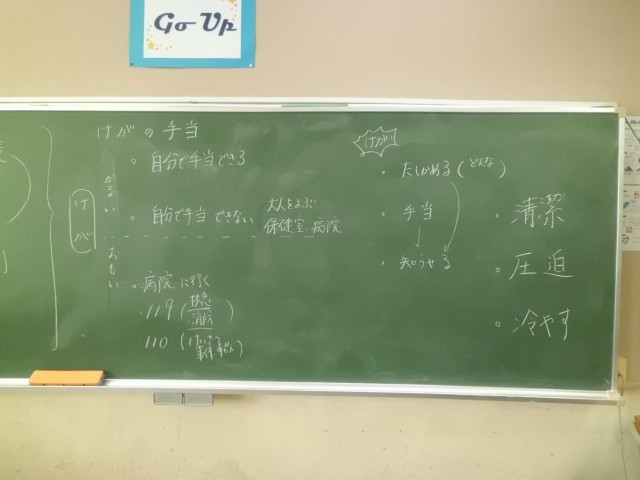 Go Up
けがの手当
けが
かるい
おもい
。自分で手当できる
。自分で手当 できない
大人をよぶ
保健室・病院
。病院に行く
・119 (救急
消防)
110 (けいさつ
事件・事故)
けが!
・たしかめる (どんな)
・手当
↓
・知らせる
。清潔
。圧迫
。冷やす